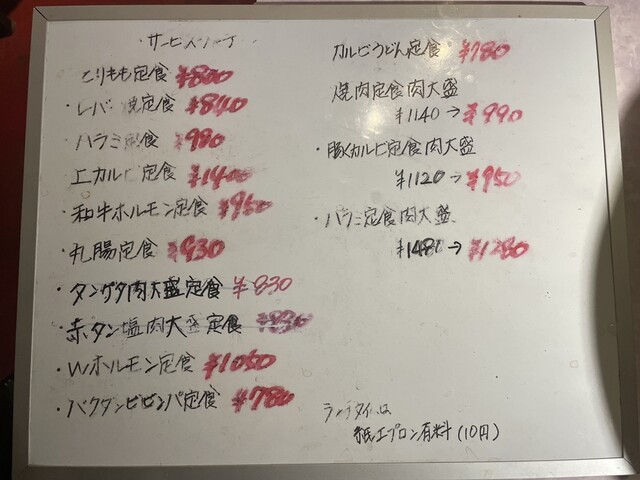 サービスランチ
とりもも定食 ¥800
・レバー焼定食 ¥840
ハラミ定食 ¥980
上カルビ定食 ¥1400
・和牛ホルモン定食 ¥950
・丸腸定食 ¥930
・タンゲタ肉大盛定食 ¥830
・赤タン塩肉大盛定食 ¥830
・Wホルモン定食 ¥1050
・バクダンビビンバ定食 ¥780
カルビうどん定食 ¥780
焼肉定食肉大盛
¥1140→¥990
・豚カルビ定食肉大盛
¥1120→¥950
・ハラミ定食肉大盛
¥1480→¥1280
ランチタイムは
紙エプロン有料(10円)